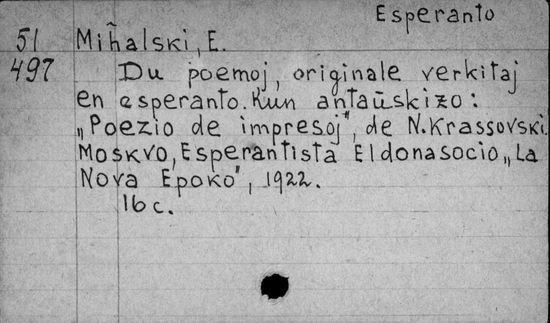 Esperanto
51
497
Miĥalski, E.
Du poemoj, originale verkitaj
en esperanto. Kun antaŭskizo:
„Poezio de impresoj", de N. Krassovski.
Moskvo, Esperantista Eldonasocio „La
Nova Epoko", 1922.
16 c.